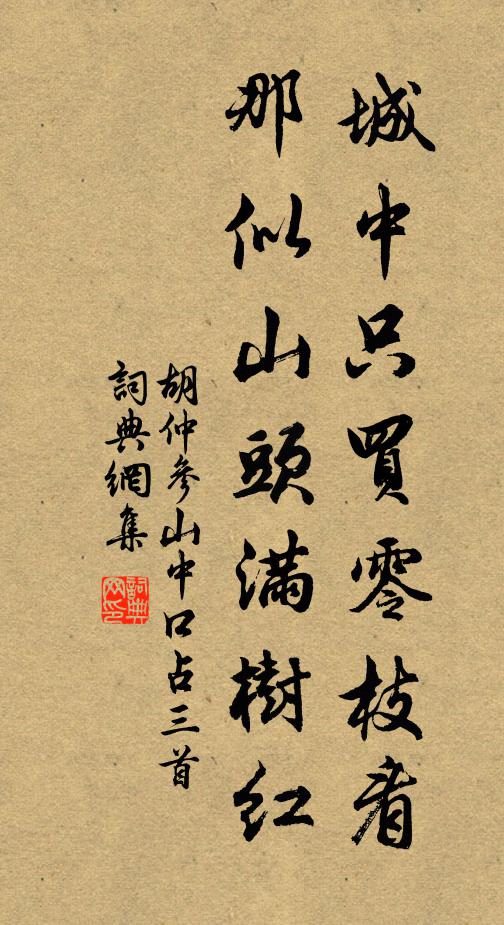 城中只買零枝看
那似山頭滿樹紅
胡仲參山中口占三首
詞典網集
詞典網印